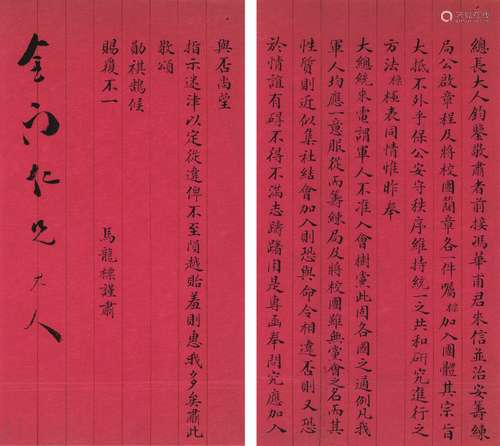 總長大人鈞鑒敬肅者前接馮華甫君來信並治安籌練
局公啟章程及將校團蘭章各一件囑標加入團體其宗旨
大抵不外乎保公安守秩序維持統一之共和研究進行之
方法標極表同情惟昨奉
大總統來電謂軍人不准入會樹黨此固各國之通例凡我
軍人均應一意服從而籌練局及將校團雖無黨會之名而其
性質則近似集社結會加入則恐與命令相違否則又恐
於情誼有碍不得不滿志躊躇用是專函奉問究應加入
與否尚望
指示迷津以定從違俾不至隕越貽羞則惠我多矣肅此
敬頌
勛祺鵠候
賜覆不一
馬龍標謹肅
仁兄大人